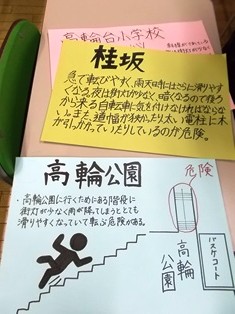 高輪台小学校
桂坂
急で転びやすく、雨天時にはさらに滑りやす
くなる。夜は街灯が少なく、暗くなるので後ろ
から来る自転車に気を付けなければならな
い。また、道幅が狭かったり太い電柱に木
が引っかかっていたりしているのが危険。
高輪公園
・高輪公園に行くためにある階段に
街灯が少なく雨が降ってしまうととても
滑りやすくなっていて転ぶ危険がある。
危険
高輪
公園
バスケコート